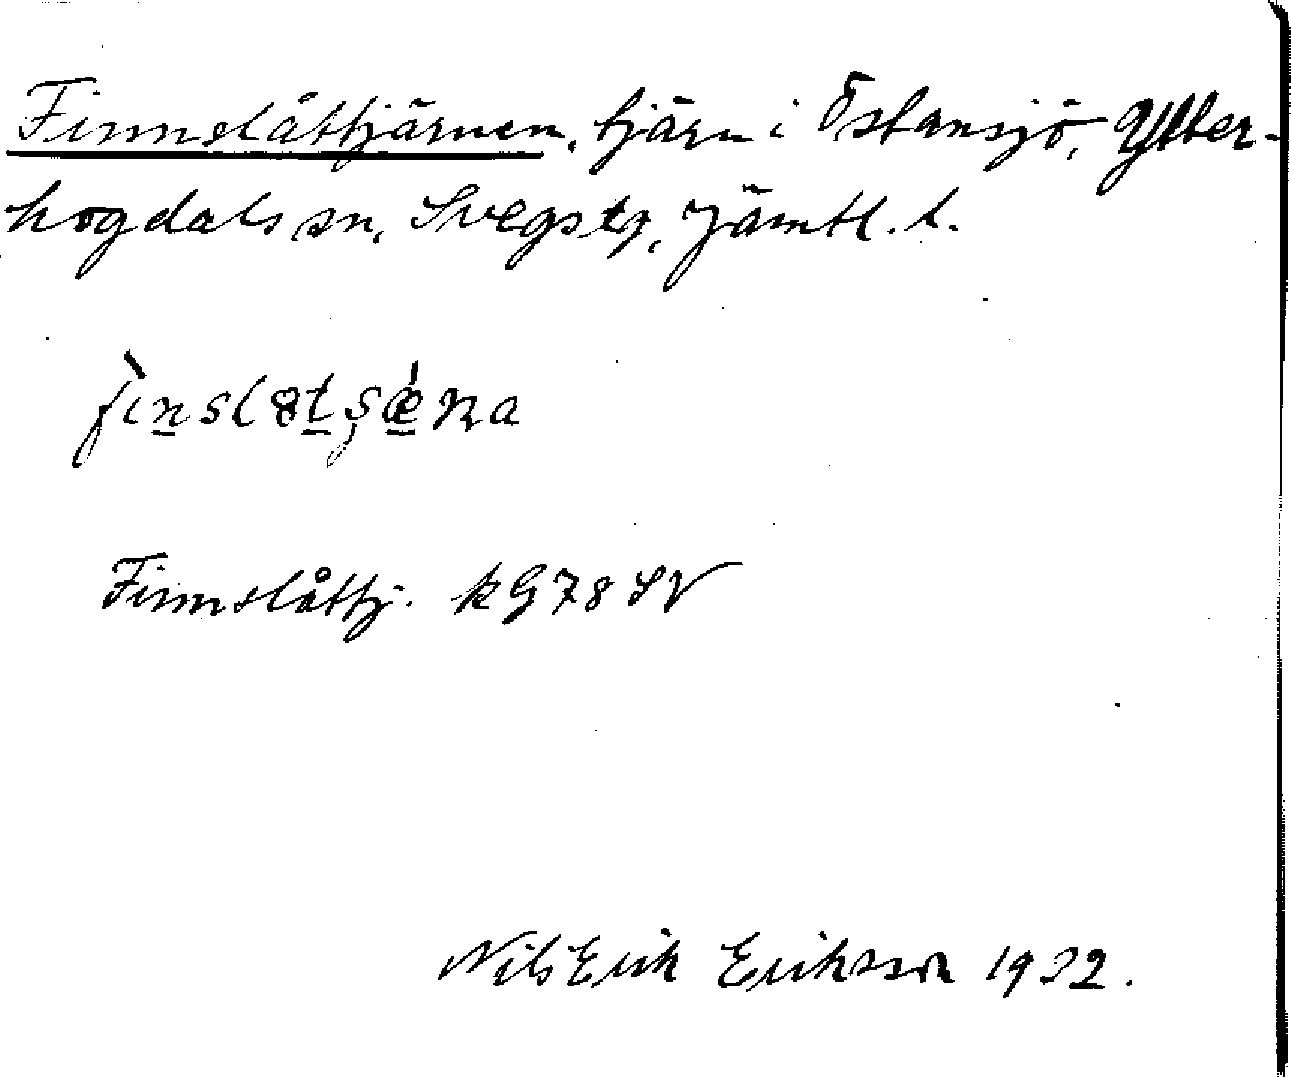 Finnslåttjärnen, tjärn i Östansjö, Ytter-
hogdals sn, Svegs tg, Jämtl. l.
Finnslåttj. kG 78 SV
Nils Erik Eriksson 1932.